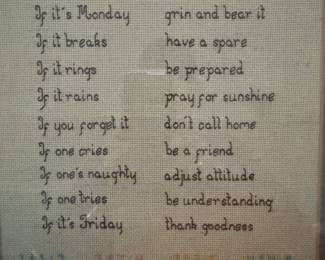 If it's Monday grin and bear it
If it breaks have a spare
If it rings be prepared
If it rains pray for sunshine
If you forget it don't call home
If one cries be a friend
If one's naughty adjust attitude
If one tries be understanding
If it's Friday thank goodness